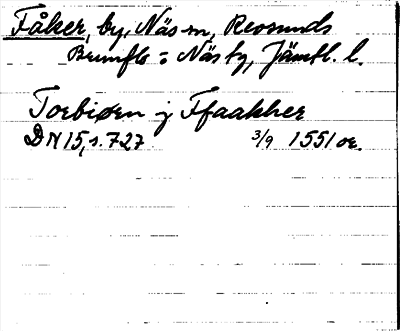 Fåker, by, Näs sn, Revsunds
Brunflo o Näs tg, Jämtl. l.
Torbiørn j Ffaakher
DN 15, s. 727 3/9 1551 or.